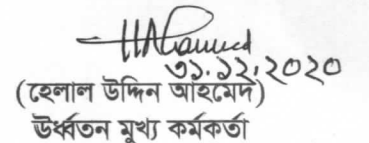 ৩১.১২.২০২০
(হেলাল উদ্দিন আহমেদ)
ঊর্ধ্বতন মুখ্য কর্মকর্তা